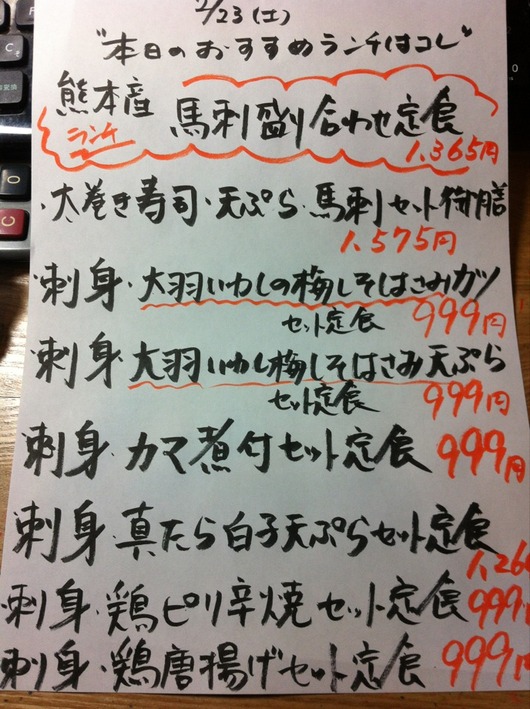 2/23(土)
"本日のおすすめランチはコレ"
熊本産 馬刺盛り合わせ定食
ランチ
1,365円
・太巻き寿司・天ぷら・馬刺セット御膳
1,575円
・刺身・大羽いわしの梅しそはさみカツ
セット定食 999円
・刺身・大羽いわし梅しそはさみ天ぷら
セット定食 999円
・刺身・カマ煮付セット定食 999円
・刺身・真たら白子天ぷらセット定食
1,26
・刺身・鶏ピリ辛焼セット定食 999円
・刺身・鶏唐揚げセット定食 999円